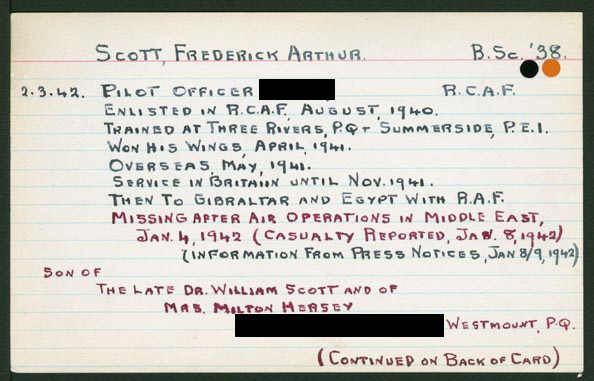 SCOTT, FREDERICK ARTHUR. B.Sc. '38.
2.3.42. PILOT OFFICER R.C.A.F.
ENLISTED IN R.C.A.F., AUGUST, 1940.
TRAINED AT THREE RIVERS, P.Q. + SUMMERSIDE, P.E.I.
WON HIS WINGS, APRIL, 1941.
OVERSEAS, MAY, 1941.
SERVICE IN BRITAIN UNTIL NOV. 1941.
THEN TO GIBRALTAR AND EGYPT WITH R.A.F.
MISSING AFTER AIR OPERATIONS IN MIDDLE EAST,
JAN. 4, 1942 (CASUALTY REPORTED, JAN. 8, 1942)
(INFORMATION FROM PRESS NOTICES, JAN 8/9, 1942)
SON OF
THE LATE DR. WILLIAM SCOTT AND OF
MRS. MILTON HERSEY
WESTMOUNT, P.Q.
(CONTINUED ON BACK OF CARD)